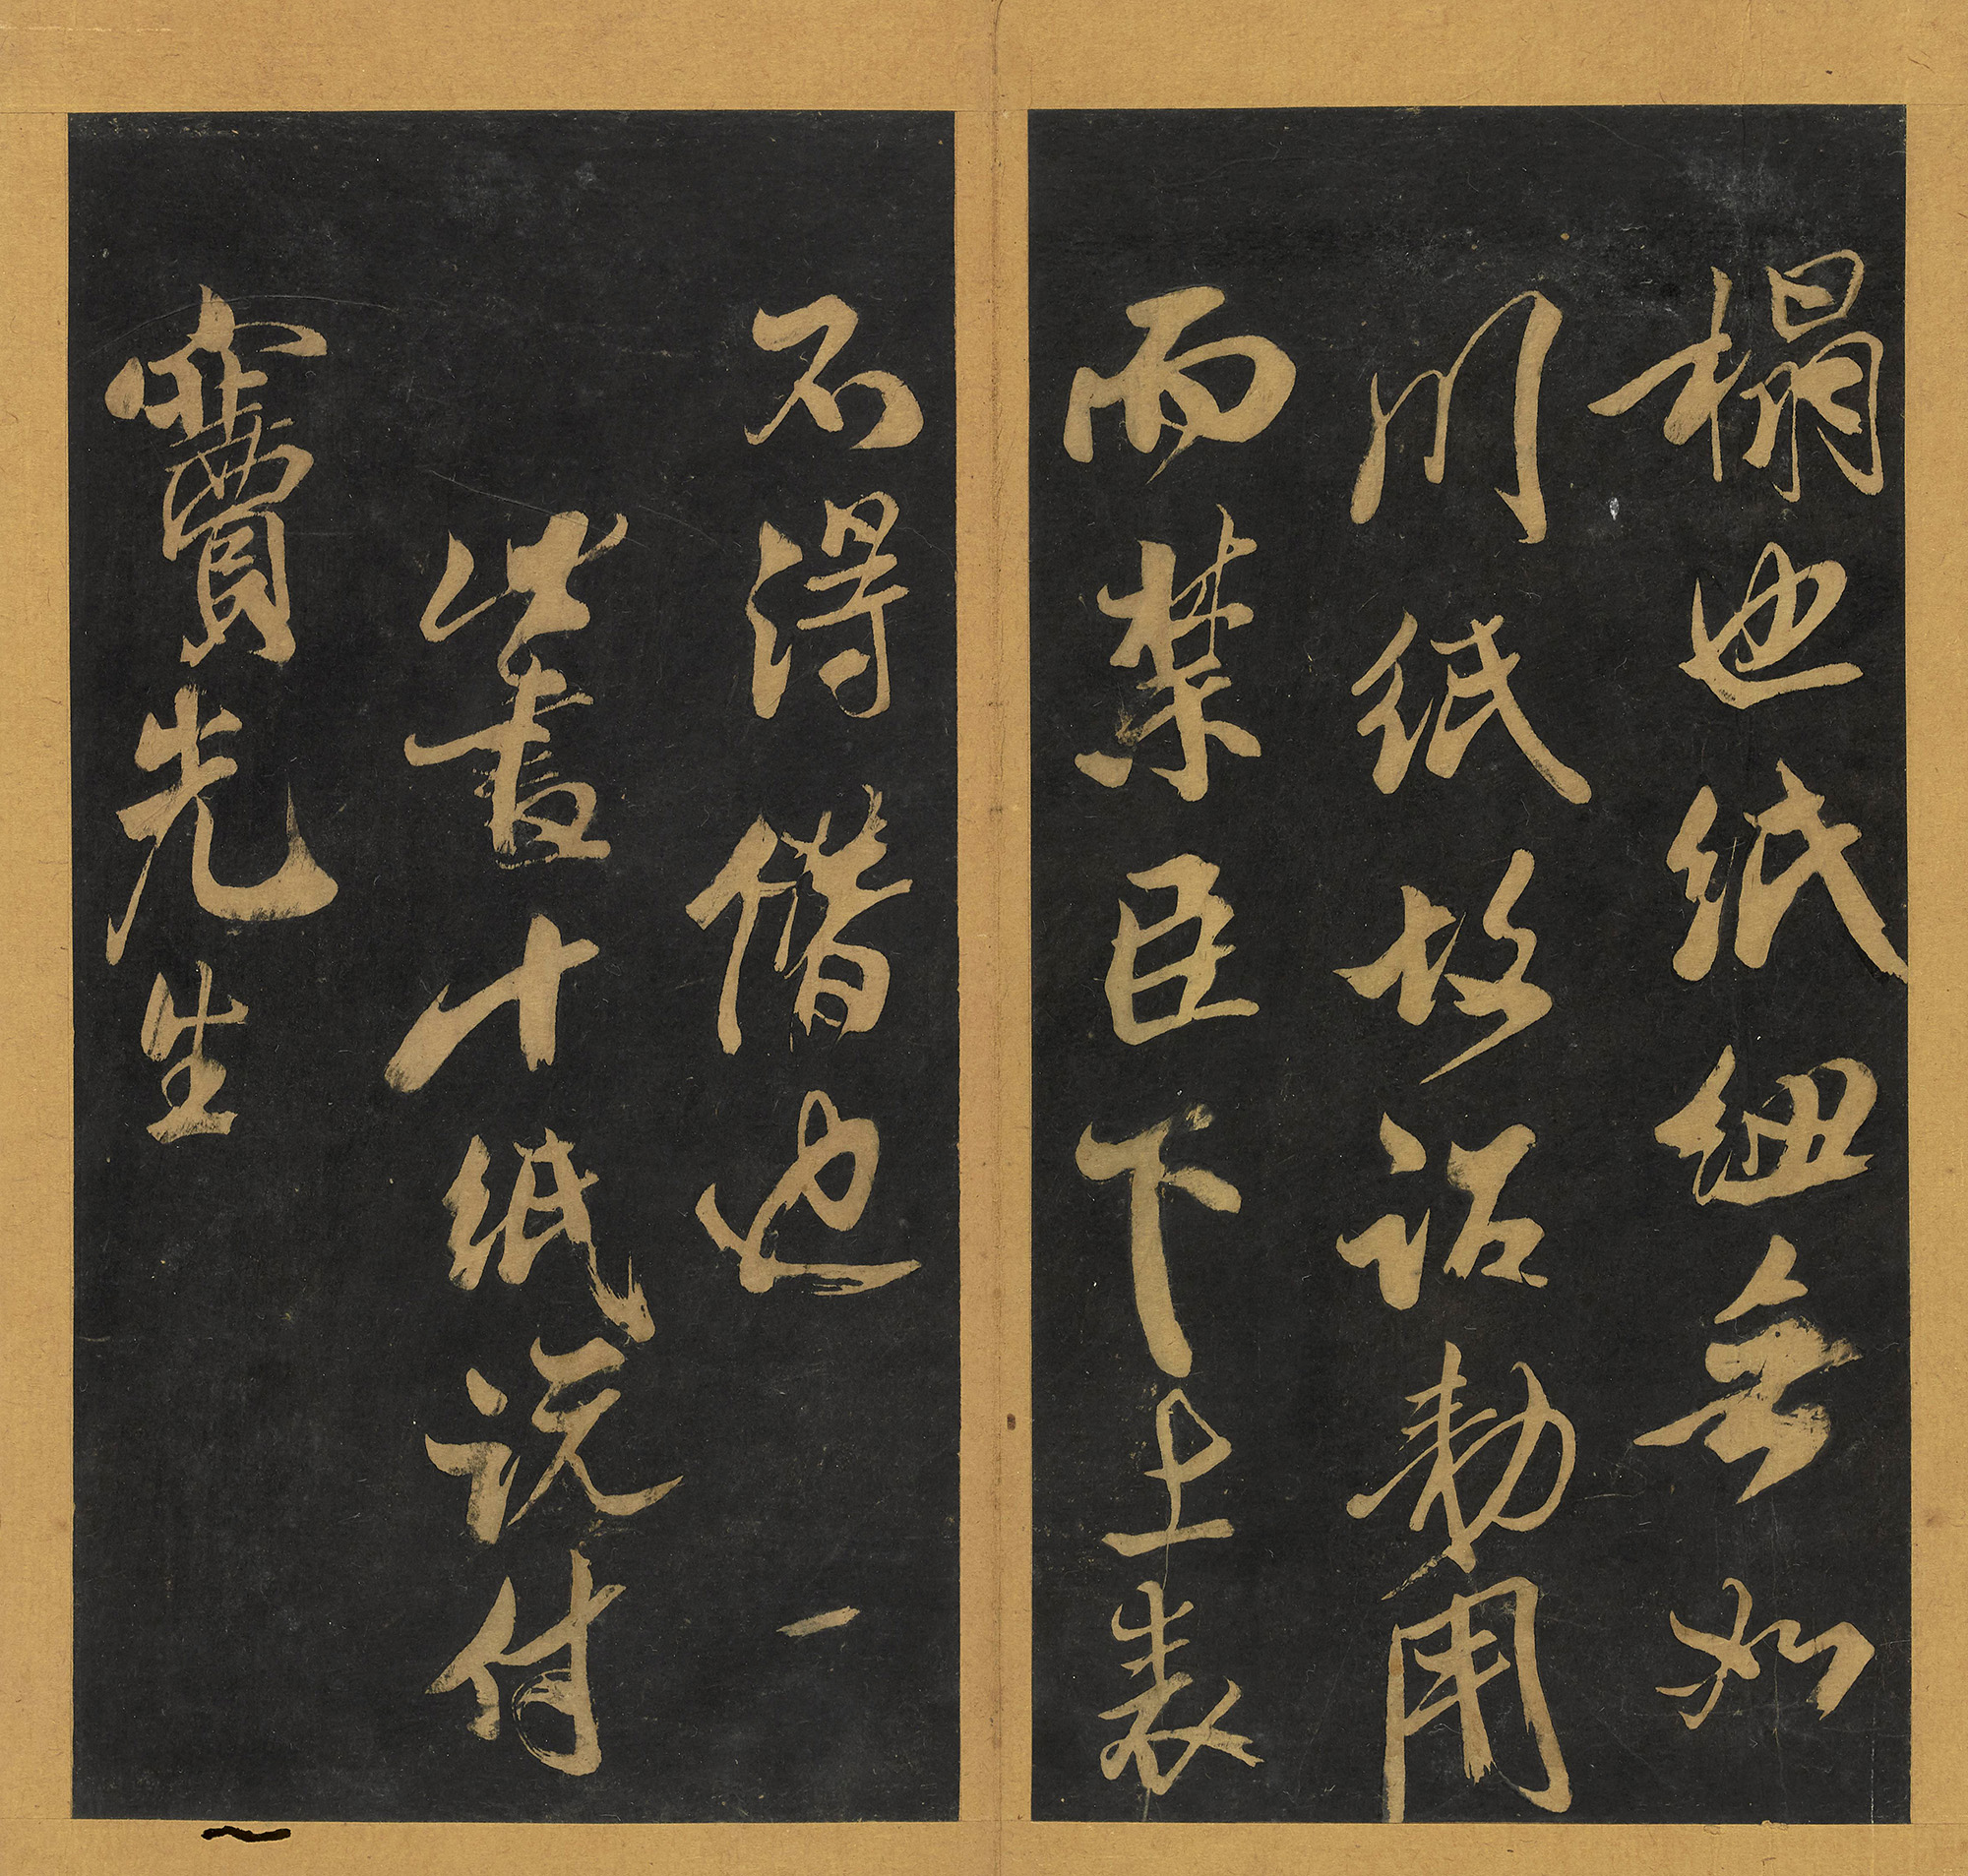 榻也紙細無如
川紙故詔勅用
而禁臣下上表
不得借也一
此書十紙說付
寶先生